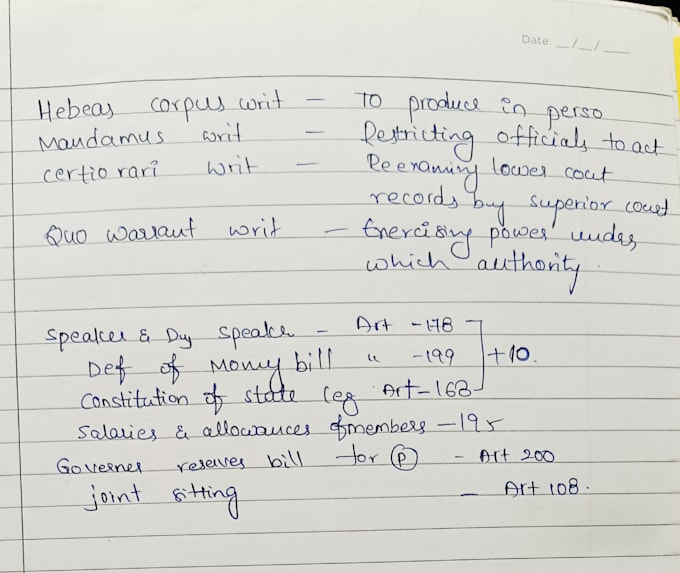 Date: __/__/____
Hebeas corpus writ – To produce in perso
Mandamus writ – Restricting officials to act
certiorari writ – Reexaming lower cout
records by superior court
Quo warraut writ – Exercising power under
which authority.
Speaker & Dy Speaker – Art - 178
Def of Money bill " - 199 +10.
Constitution of state leg Art - 168
Salaries & allowances of members – 195
Governer reserves bill for P - Art 200
joint sitting – Art 108.